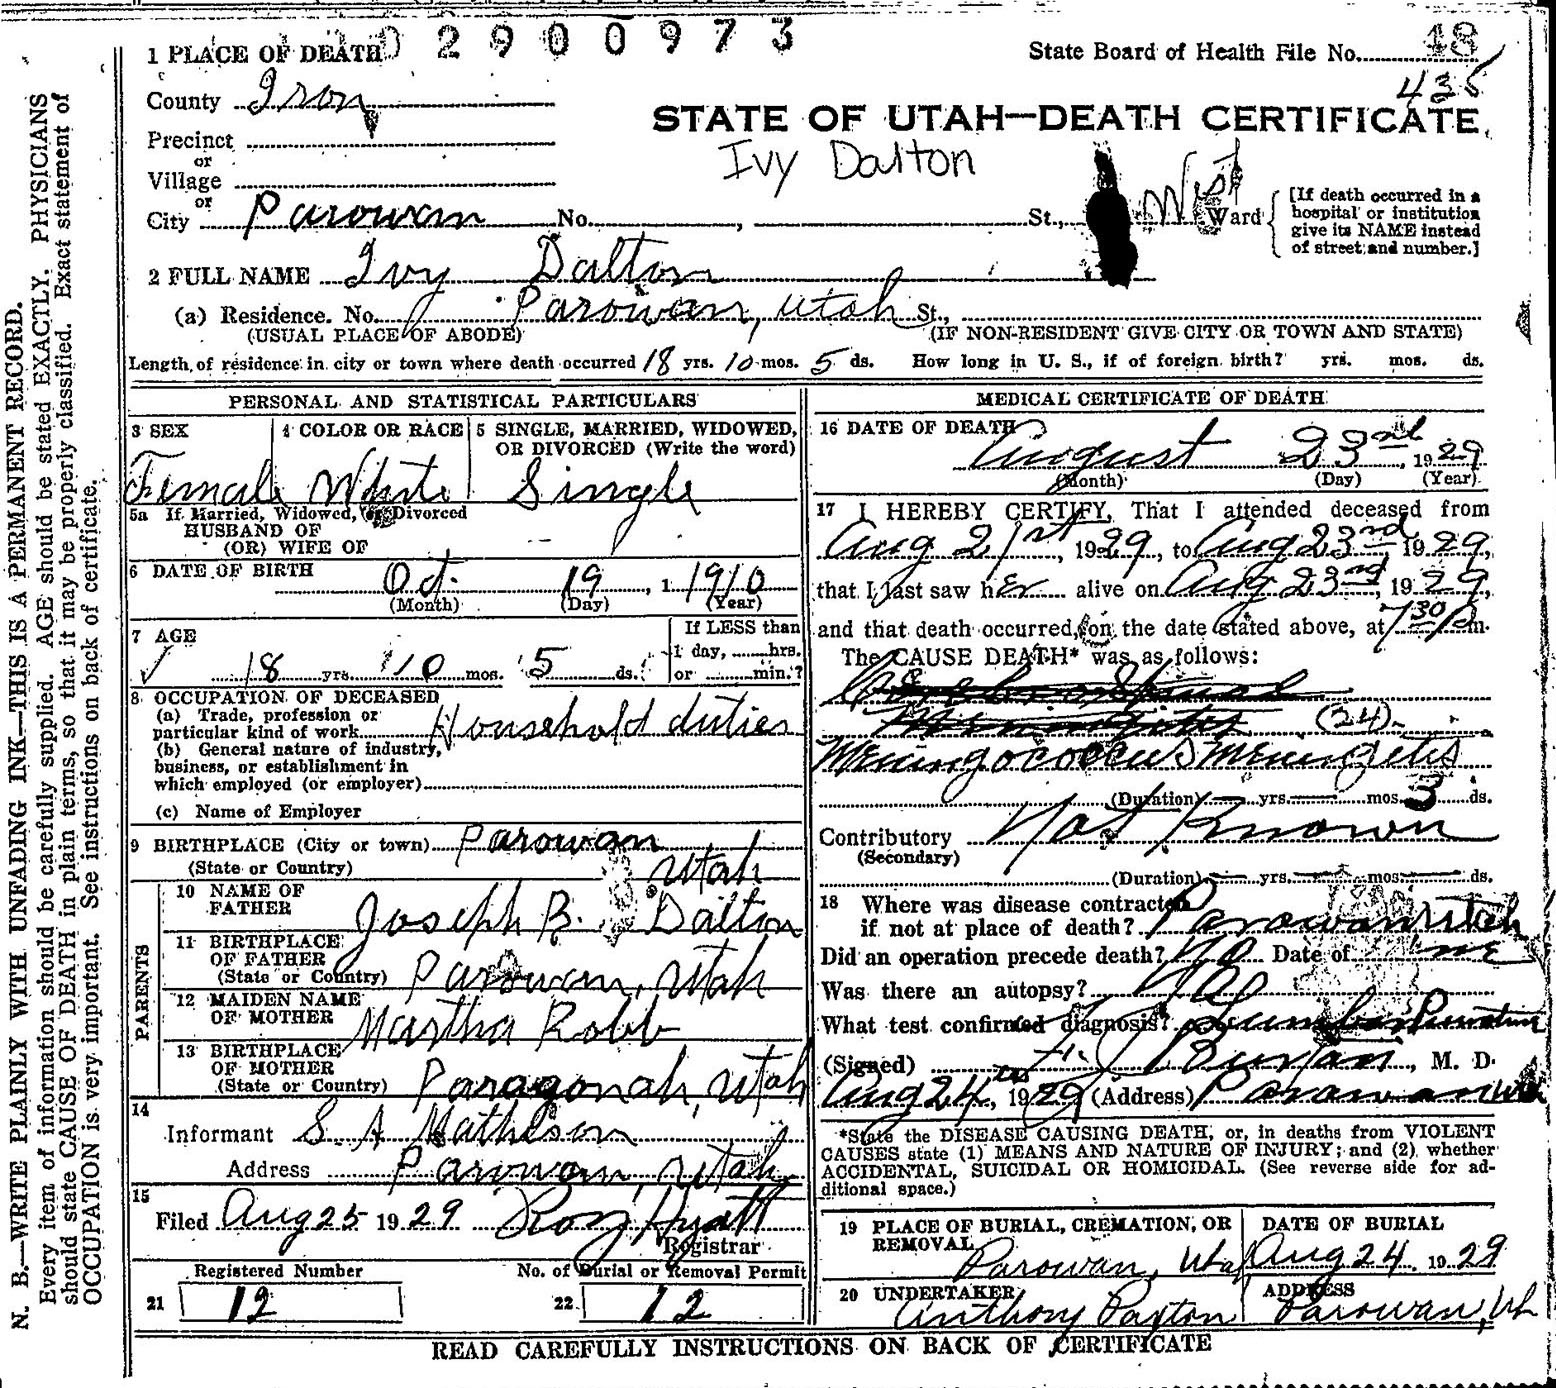 02900973
1 PLACE OF DEATH
State Board of Health File No. 48
435
County Iron
STATE OF UTAH—DEATH CERTIFICATE
Precinct
or
Ivy Dalton
Village
or
City Parowan No. , St., West Ward
[If death occurred in a
hospital or institution
give its NAME instead
of street and number.]
2 FULL NAME Ivy Dalton
(a) Residence. No. Parowan, Utah St.,
(USUAL PLACE OF ABODE) (IF NON-RESIDENT GIVE CITY OR TOWN AND STATE)
Length of residence in city or town where death occurred 18 yrs. 10 mos. 5 ds. How long in U. S., if of foreign birth? yrs. mos. ds.
PERSONAL AND STATISTICAL PARTICULARS
3 SEX 4 COLOR OR RACE 5 SINGLE, MARRIED, WIDOWED,
OR DIVORCED (Write the word)
Female White Single
5a If Married, Widowed, or Divorced
HUSBAND OF
(OR) WIFE OF
6 DATE OF BIRTH Oct. 19, 1 1910
(Month) (Day) (Year)
7 AGE If LESS than
1 day, ......hrs.
18 yrs. 10 mos. 5 ds. or ......min.?
8 OCCUPATION OF DECEASED
(a) Trade, profession or
particular kind of work Household duties
(b) General nature of industry,
business, or establishment in
which employed (or employer)
(c) Name of Employer
9 BIRTHPLACE (City or town) Parowan
(State or Country) Utah
PARENTS
10 NAME OF
FATHER Joseph B. Dalton
11 BIRTHPLACE
OF FATHER
(State or Country) Parowan, Utah
12 MAIDEN NAME
OF MOTHER Martha Robb
13 BIRTHPLACE
OF MOTHER
(State or Country) Paragonah, Utah
14
Informant S. A Matheson
Address Parowan, Utah
15
Filed Aug 25 1929 Roy Hyatt
Registrar
Registered Number No. of Burial or Removal Permit
21 12 22 12
MEDICAL CERTIFICATE OF DEATH
16 DATE OF DEATH
August 23rd, 1929
(Month) (Day) (Year)
17 I HEREBY CERTIFY, That I attended deceased from
Aug 21st, 1929, to Aug 23rd, 1929,
that I last saw her alive on Aug 23rd, 1929,
and that death occurred, on the date stated above, at 7 30 P m.
The CAUSE DEATH* was as follows:
Cerebro Spinal
Meningitis (24)
Meningococcus meningetis
(Duration) yrs. mos. 3 ds.
Contributory Not Known
(Secondary)
(Duration) yrs. mos. ds.
18 Where was disease contracted
if not at place of death? Parowan Utah
Did an operation precede death? No Date of
Was there an autopsy? No
What test confirmed diagnosis? Lumbar Puncture
(Signed) Burton, M. D.
Aug 24, 1929 (Address) Parowan
*State the DISEASE CAUSING DEATH, or, in deaths from VIOLENT
CAUSES state (1) MEANS AND NATURE OF INJURY; and (2) whether
ACCIDENTAL, SUICIDAL OR HOMICIDAL. (See reverse side for ad-
ditional space.)
19 PLACE OF BURIAL, CREMATION, OR
REMOVAL
DATE OF BURIAL
Parowan, Utah Aug 24 1929
20 UNDERTAKER ADDRESS
Anthony Paxton Parowan, Ut
READ CAREFULLY INSTRUCTIONS ON BACK OF CERTIFICATE
N. B.—WRITE PLAINLY WITH UNFADING INK—THIS IS A PERMANENT RECORD.
Every item of information should be carefully supplied. AGE should be stated EXACTLY. PHYSICIANS
should state CAUSE OF DEATH in plain terms, so that it may be properly classified. Exact statement of
OCCUPATION is very important. See instructions on back of certificate.